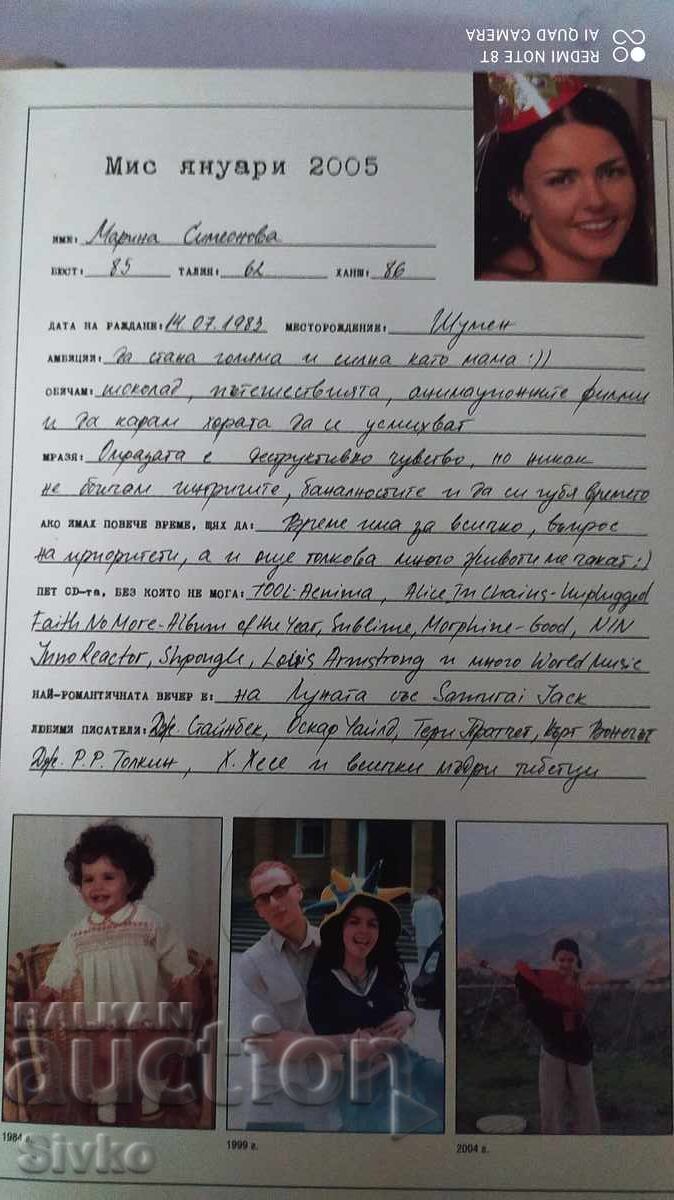 REDMI NOTE 8T
AI QUAD CAMERA
Мис януари 2005
ИМЕ: Марина Симеонова
БЮСТ: 85 ТАЛИЯ: 62 ХАНШ: 86
ДАТА НА РАЖДАНЕ: 14.07.1983 МЕСТОРОЖДЕНИЕ: Шумен
АМБИЦИИ: Да стана голяма и силна като мама :))
ОБИЧАМ: шоколад, пътешествията, анимационните филми
и да карам хората да се усмихват
МРАЗЯ: Омразата е деструктивно чувство, но никак
не обичам интригите, баналностите и да си губя времето
АКО ИМАХ ПОВЕЧЕ ВРЕМЕ, ЩЯХ ДА: Време има за всичко, въпрос
на приоритети, а и още толкова много животи ме чакат :)
ПЕТ CD-та, БЕЗ КОИТО НЕ МОГА: TOOL-Aenima, Alice In Chains-Unplugged
Faith No More-Album of the Year, Sublime, Morphine-Good, NIN
InnoReactor, Shpongle, Louis Armstrong и много World Music
НАЙ-РОМАНТИЧНАТА ВЕЧЕР Е: на Луната със Samurai Jack
ЛЮБИМИ ПИСАТЕЛИ: Дж. Стайнбек, Оскар Уайлд, Тери Пратчет, Кърт Вонегът
Дж. Р.Р. Толкин, Х. Хесе и всички мъдри тибетци
BALKAN
auction
1984 г.
1999 г.
2004 г.
Sivko